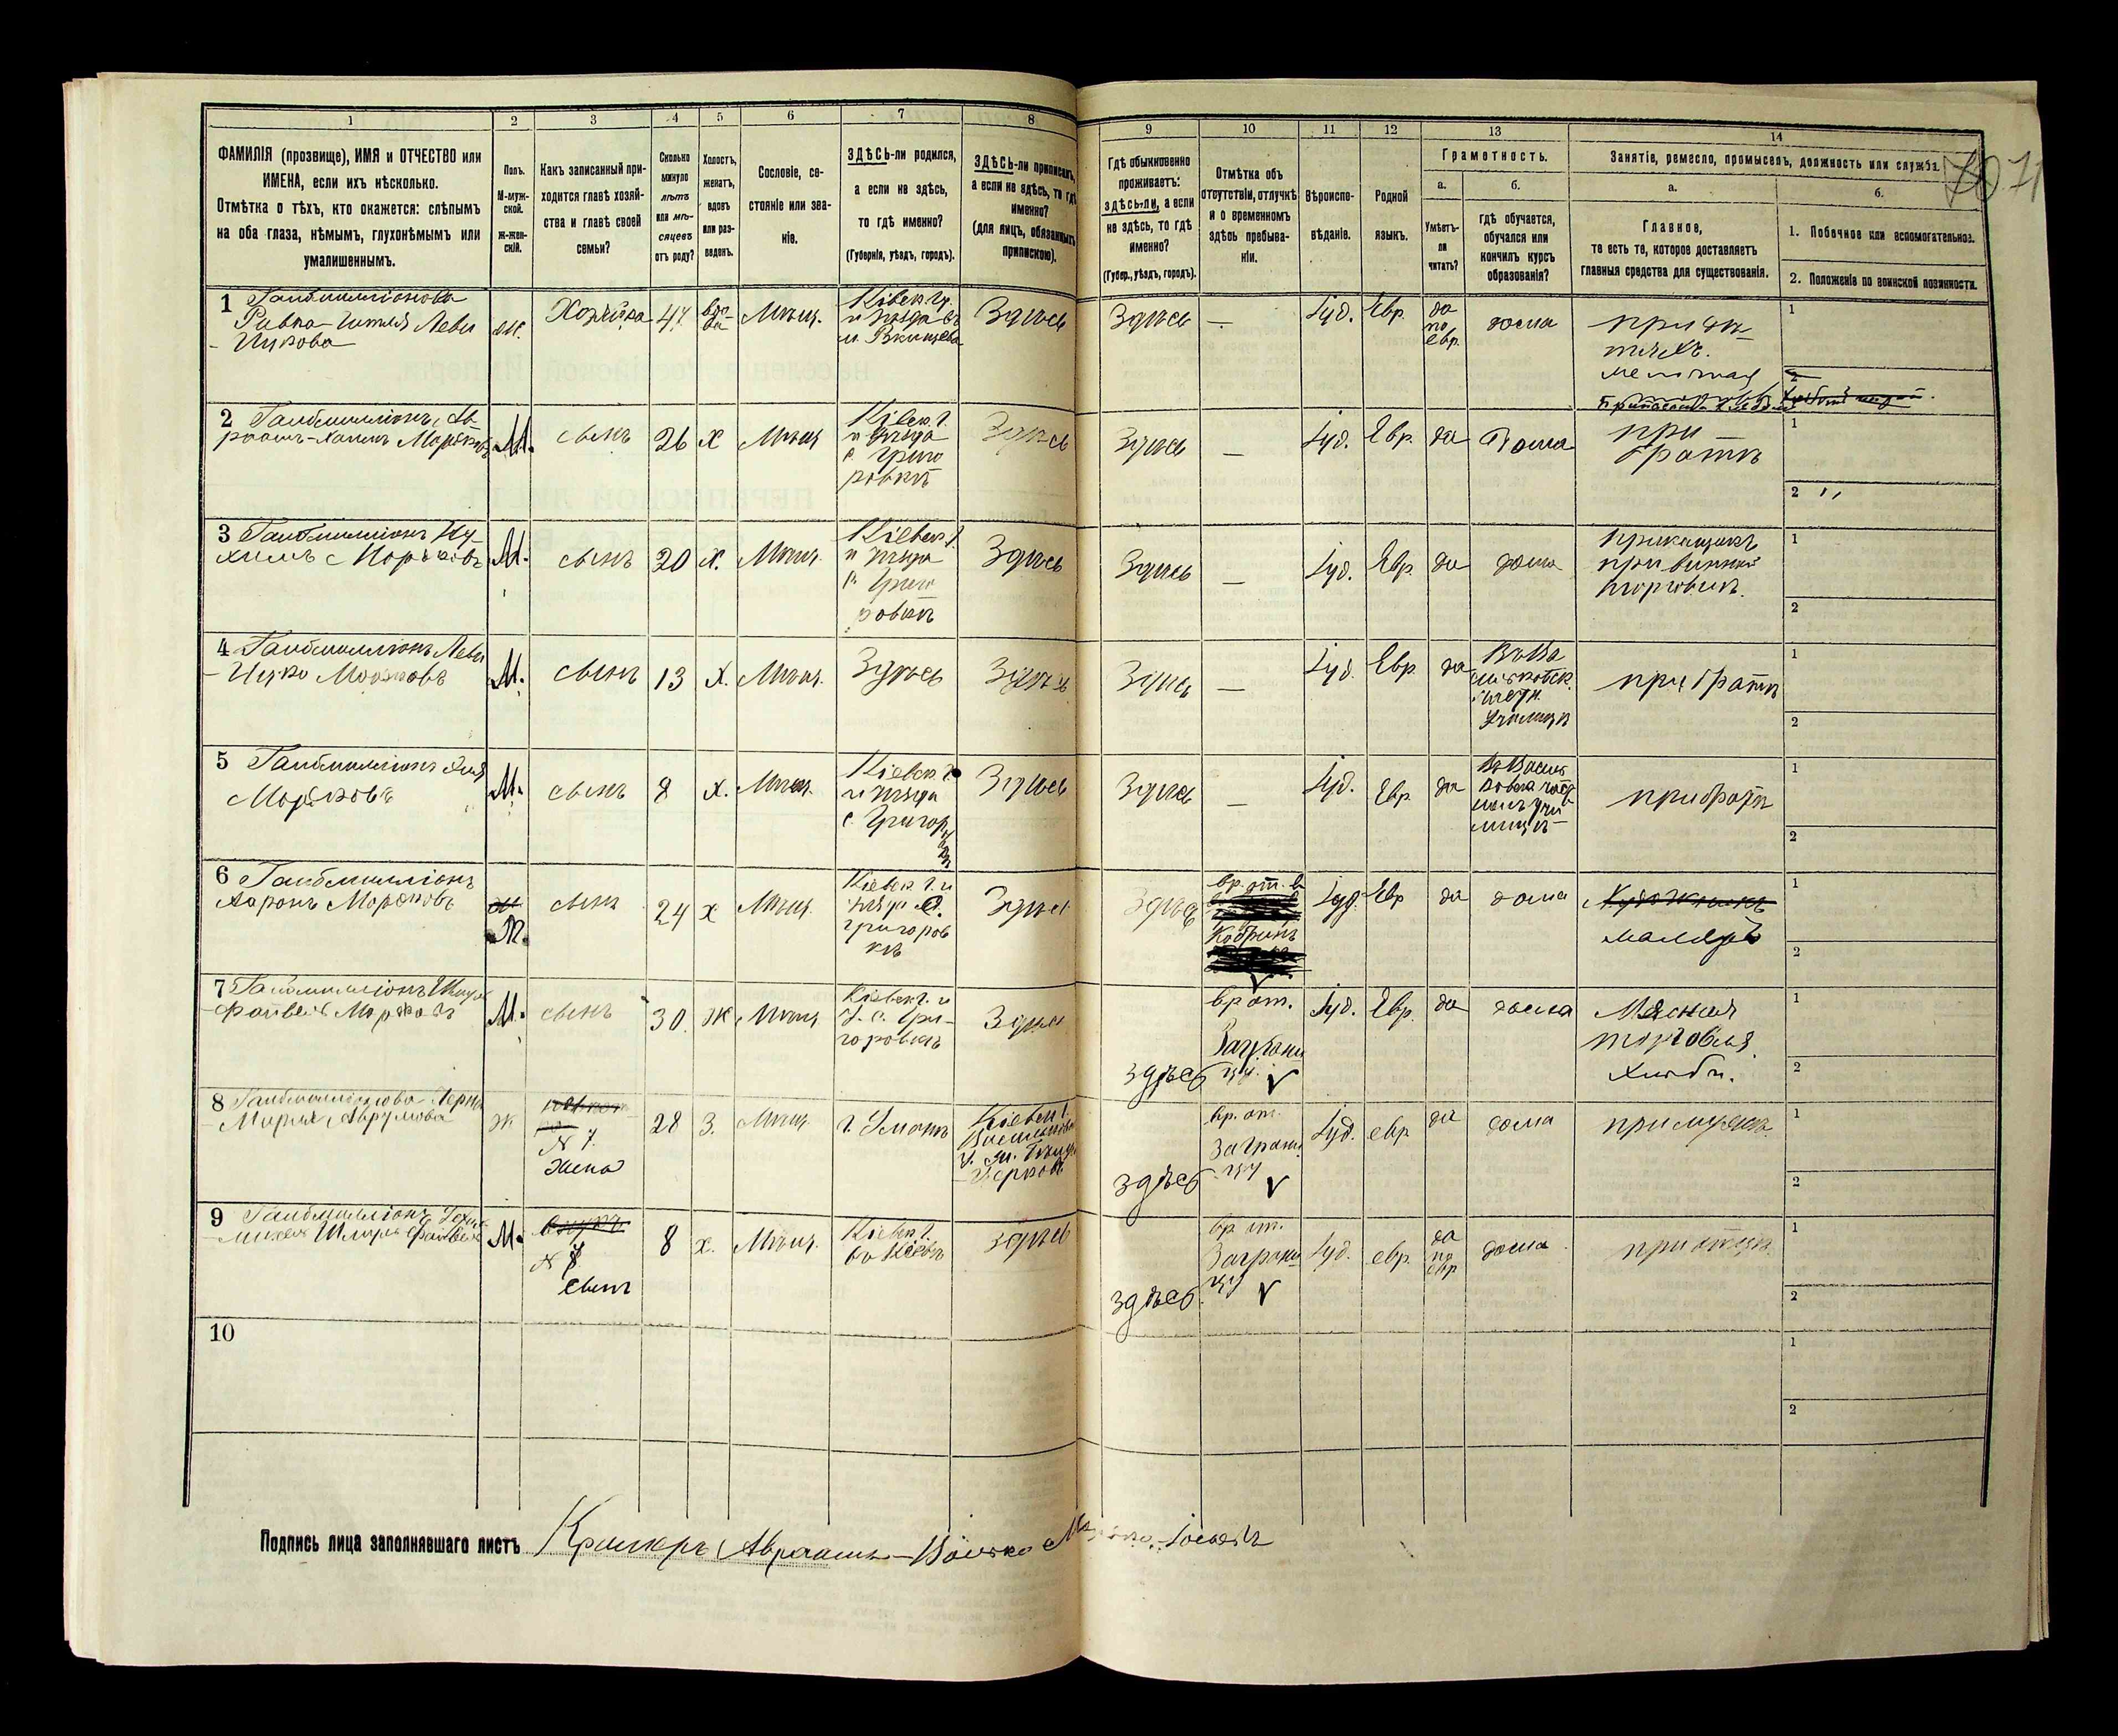 1
2
3
4
5
6
7
8
9
10
11
12
13
14
ФАМИЛІЯ (прозвище), ИМЯ и ОТЧЕСТВО или
ИМЕНА, если ихъ нѣсколько.
Отмѣтка о тѣхъ, кто окажется: слѣпымъ
на оба глаза, нѣмымъ, глухонѣмымъ или
умалишеннымъ.
Полъ.
М-муж-
ской.
Ж-жен-
скій.
Какъ записанный при-
ходится главѣ хозяй-
ства и главѣ своей
семьи?
Сколько
минуло
лѣтъ
или мѣ-
сяцевъ
отъ роду?
Холостъ,
женатъ,
вдовъ
или раз-
веденъ.
Сословіе, со-
стояніе или зва-
ніе.
ЗДѢСЬ-ли родился,
а если не здѣсь,
то гдѣ именно?
(Губернія, уѣздъ, городъ).
ЗДѢСЬ-ли приписанъ,
а если не здѣсь, то гдѣ
именно?
(для лицъ, обязанныхъ
припискою).
Гдѣ обыкновенно
проживаетъ:
здѣсь-ли, а если
не здѣсь, то гдѣ
именно?
(Губер., уѣздъ, городъ).
Отмѣтка объ
отсутствіи, отлучкѣ
и о временномъ
здѣсь пребыва-
ніи.
Вѣроиспо-
вѣданіе.
Родной
языкъ.
Грамотность.
а.
Умѣетъ-
ли
читать?
б.
гдѣ обучается,
обучался или
кончилъ курсъ
образованія?
Занятіе, ремесло, промыселъ, должность или служба.
71
а.
Главное,
то есть то, которое доставляетъ
главныя средства для существованія.
б.
1. Побочное или вспомогательное.
2. Положеніе по воинской повинности.
1 Гамбмилліонова
Ривка-Гитля Леви
-Ицкова
Хозяйка
47
вдо-
ва
Мѣщ.
Кіевск. Гу.
и уѣзда въ
Здѣсь
Здѣсь
—
Іуд.
Евр.
да
по
евр.
дома
при дѣ-
тяхъ.
мелочная
1
2
2 Гамбмилліонъ, Ав-
раамъ-Хаимъ Морковъ
М.
сынъ
26
х
Мѣщ
Кіевск. Г.
и уѣзда
с. Григо
ровкѣ
Здѣсь
Здѣсь
—
Іуд.
Евр.
да
дома
при
братѣ
1
2 "
3 Гамбмилліонъ Ну-
химъ Морковъ
М.
сынъ
20
х.
Мѣщ.
Кіевск. Г.
и уѣзда
с. Григо
ровкѣ
Здѣсь
Здѣсь
—
Іуд.
Евр.
да
дома
Прикащикъ
при винной
торговлѣ.
1
2
4 Гамбмилліонъ Леви
-Ицко Морковъ
М.
сынъ
13
х.
Мѣщ.
Здѣсь
Здѣсь
Здѣсь
—
Іуд.
Евр.
да
училищѣ
при братѣ
1
2
5 Гамбмилліонъ
Морковъ
М.
сынъ
8
х.
Мѣщ.
Кіевск. Г.
и уѣзда
с. Григор
Здѣсь
Здѣсь
—
Іуд.
Евр
да
при братѣ
1
2
6 Гамбмилліонъ
Ааронъ Морковъ
М.
сынъ
24
х
Мѣщ.
Кіевск. Г. и
уѣзда с.
Григоров
кѣ
Здѣсь
Здѣсь
вр. от. в
Кобринъ
Іуд.
Евр
да
дома
Маляръ
1
2
7 Гамбмилліонъ
Файвель Морковъ
М.
сынъ
30.
Ж
Мѣщ
Кіевск. Г. и
у. с. Гри-
горовкѣ
Здѣсь
здѣсь
вр от.
Заграни
цу. V
Іуд.
Евр.
да
дома
Мясная
торговля
1
2
8 Гамбмилліонова Черна
Миріа Аврумова
Ж
N 7.
жена
28
З.
Мѣщ
г. Умань
Кіевск. Г.
Васильков
у. м. Бѣлая
Церковь
здѣсь
вр. от.
Заграни
цу V
Іуд.
евр
да
дома
при мужѣ.
1
2
9 Гамбмилліонъ
М.
N 7
сынъ
8
х.
Мѣщ.
Кіевск. Г.
въ Кіевѣ
здѣсь
здѣсь.
вр от.
Заграни
цу V
Іуд.
евр.
да
по
евр
дома
при отцѣ
1
2
10
1
2
Подпись лица заполнявшаго листъ Крамеръ Авраамъ-Волько